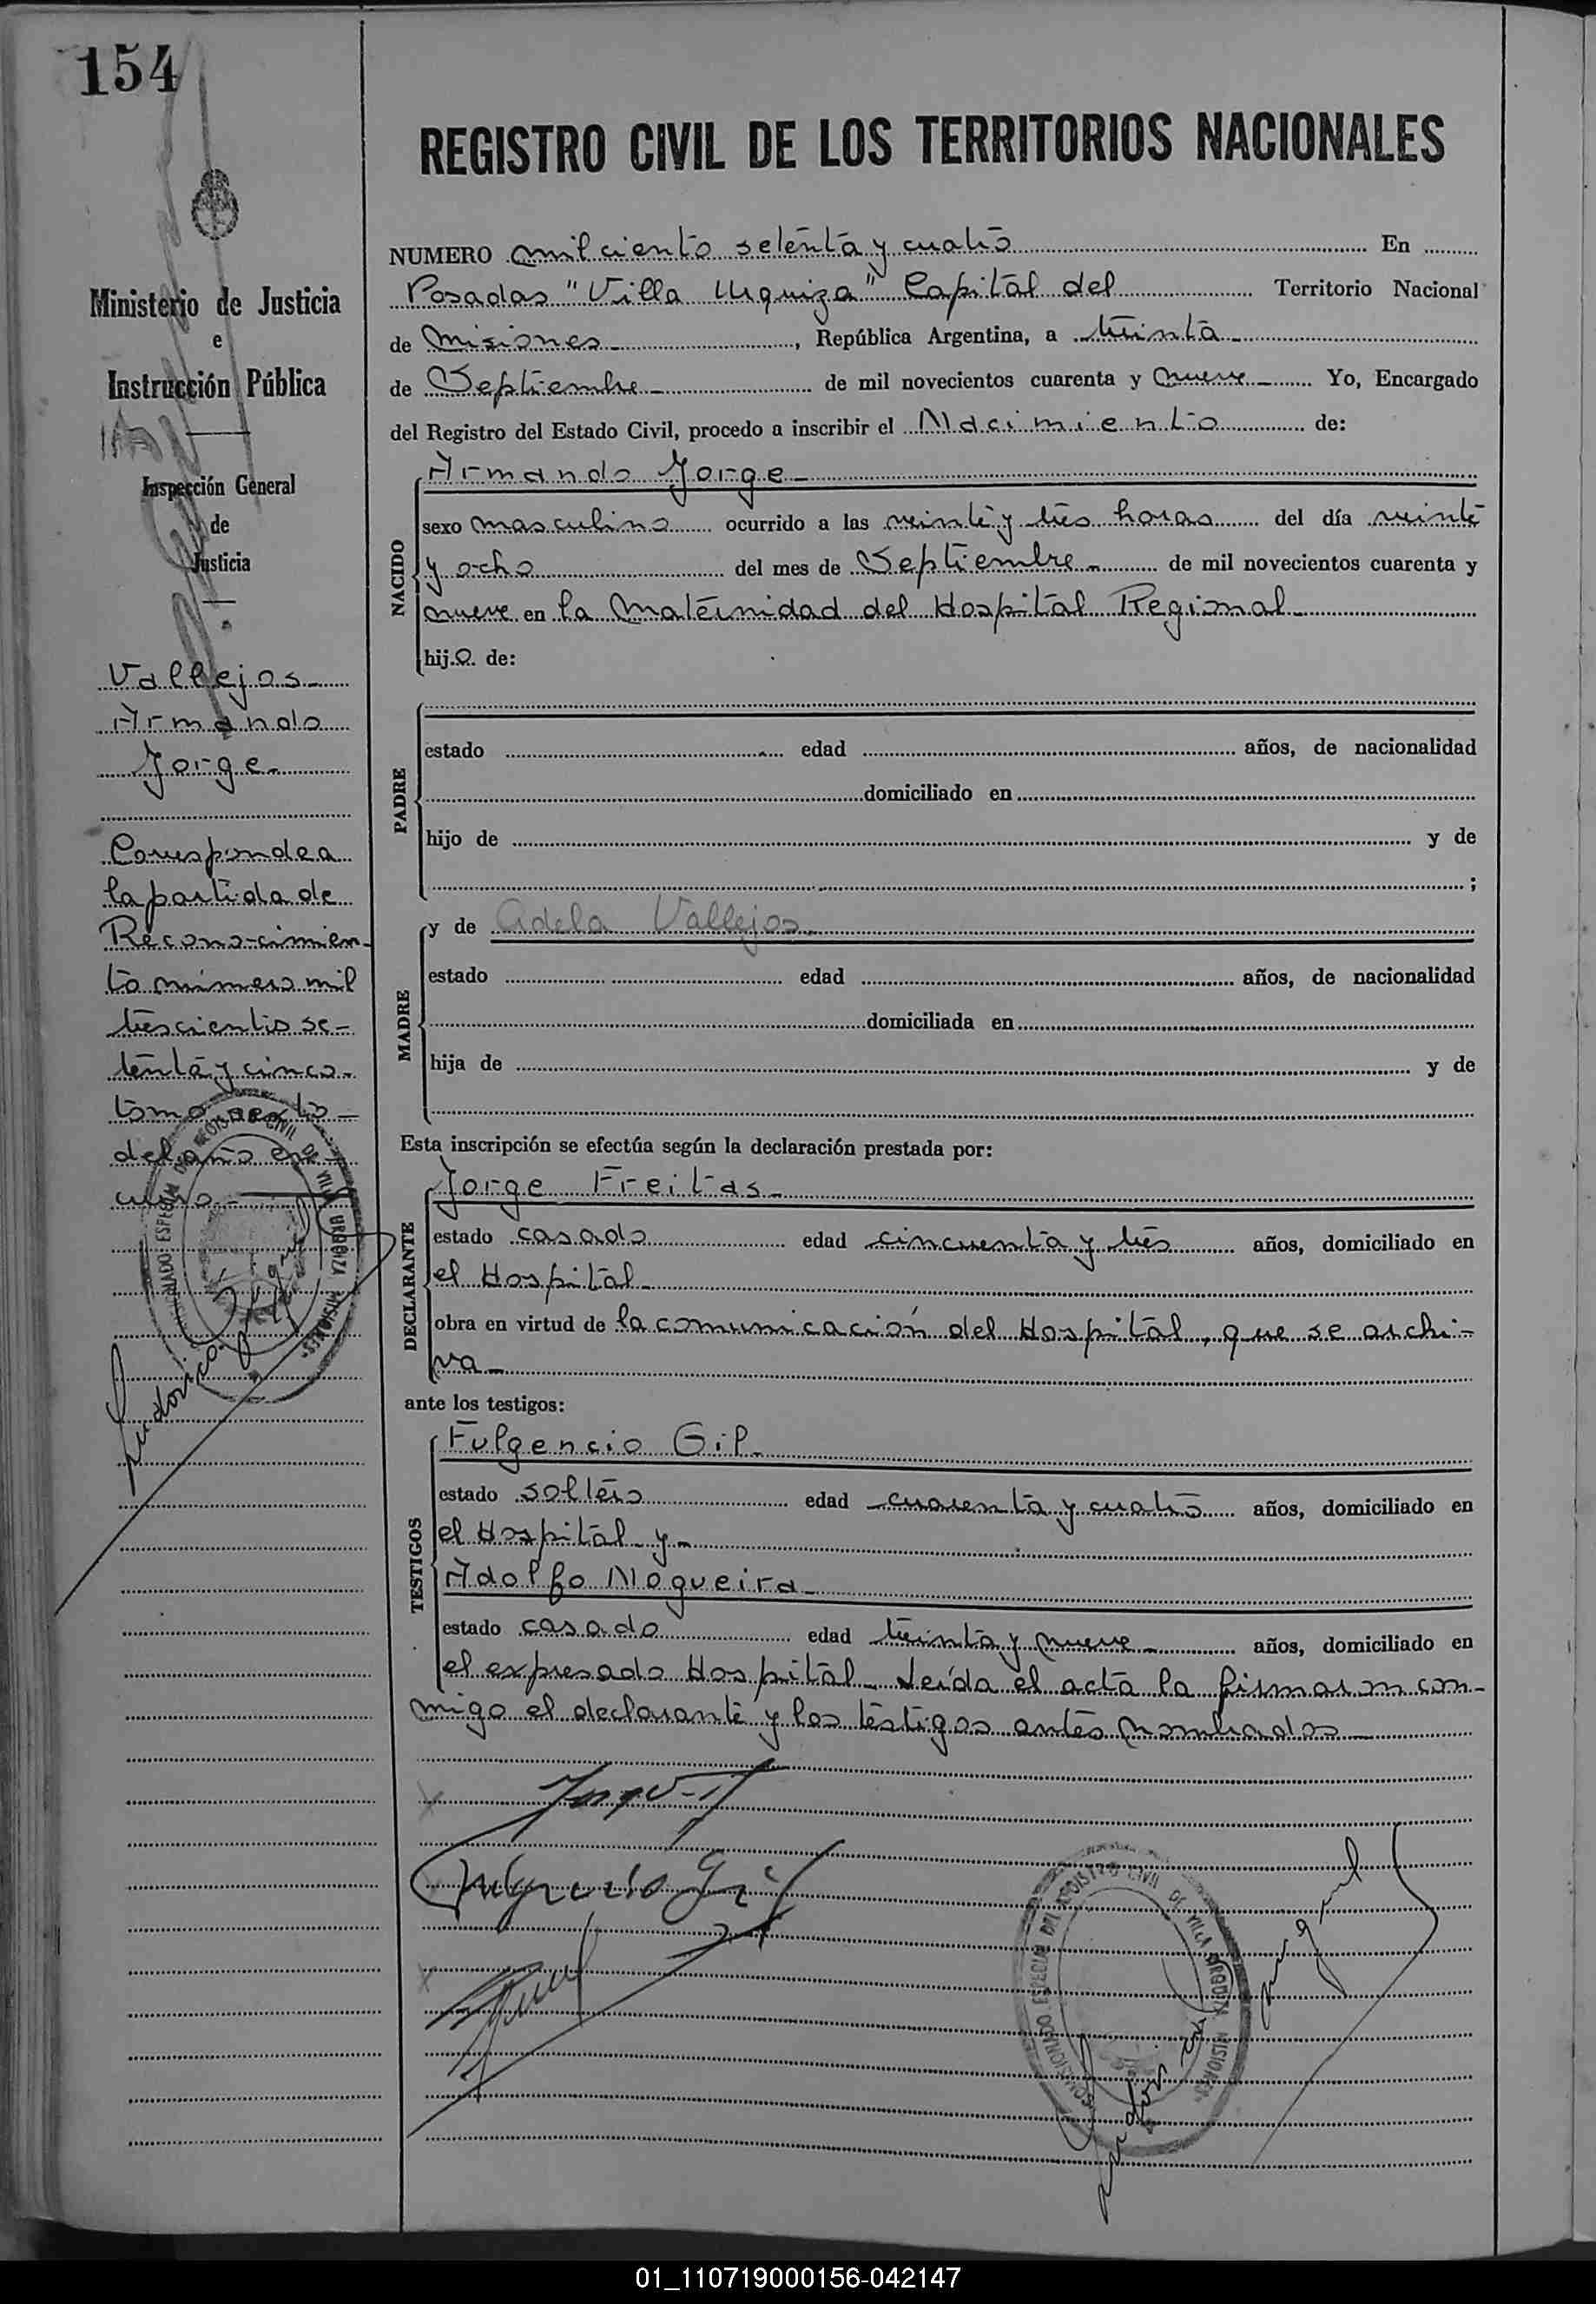 154
REGISTRO CIVIL DE LOS TERRITORIOS NACIONALES
Ministerio de Justicia
e
Instrucción Pública
Inspección General
de
Justicia
Vallejos
Armando
Jorge
Corresponde a
la partida de
Reconocimien-
to número mil
trescientos se-
tenta y cinco
tomo sexto
del año en
curso
NUMERO mil ciento setenta y cuatro En
Posadas "Villa Urquiza" Capital del Territorio Nacional
de Misiones, República Argentina, a treinta
de Septiembre de mil novecientos cuarenta y nueve Yo, Encargado
del Registro del Estado Civil, procedo a inscribir el Nacimiento de:
NACIDO
Armando Jorge
sexo masculino ocurrido a las veinte y tres horas del día veinte
y ocho del mes de Septiembre de mil novecientos cuarenta y
nueve en la Maternidad del Hospital Regional
hijo de:
PADRE
estado edad años, de nacionalidad
domiciliado en
hijo de y de
;
MADRE
y de Adela Vallejos
estado edad años, de nacionalidad
domiciliada en
hija de y de
Esta inscripción se efectúa según la declaración prestada por:
DECLARANTE
Jorge Freitas
estado casado edad cincuenta y tres años, domiciliado en
el Hospital
obra en virtud de la comunicación del Hospital, que se archi-
va
ante los testigos:
TESTIGOS
Fulgencio Gil
estado soltero edad cuarenta y cuatro años, domiciliado en
el Hospital y
Adolfo Nogueira
estado casado edad treinta y nueve años, domiciliado en
el expresado Hospital. Leída el acta la firmaron con-
migo el declarante y los testigos antes nombrados
Fulgencio Gil
COMISIONADO ESPECIAL DEL REGISTRO CIVIL DE VILLA URQUIZA MISIONES
COMISIONADO ESPECIAL DEL REGISTRO CIVIL DE VILLA URQUIZA MISIONES
01_110719000156-042147